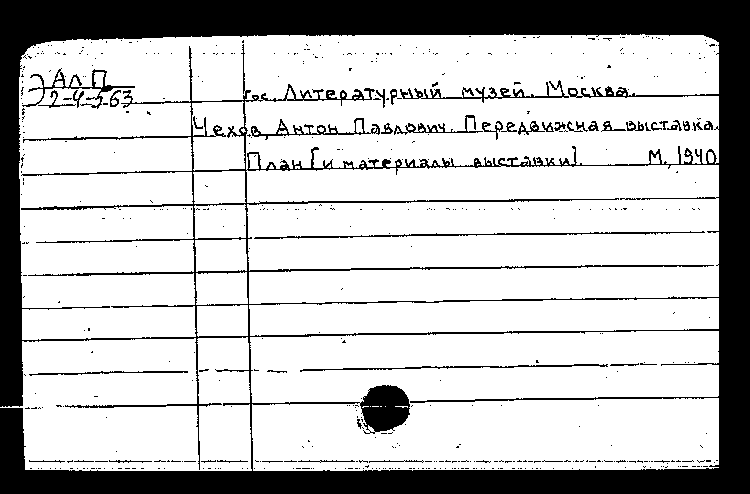 Э АлП
2-4-563
Гос. Литературный музей. Москва.
Чехов, Антон Павлович. Передвижная выставка.
План [и материалы выставки]. М., 1940